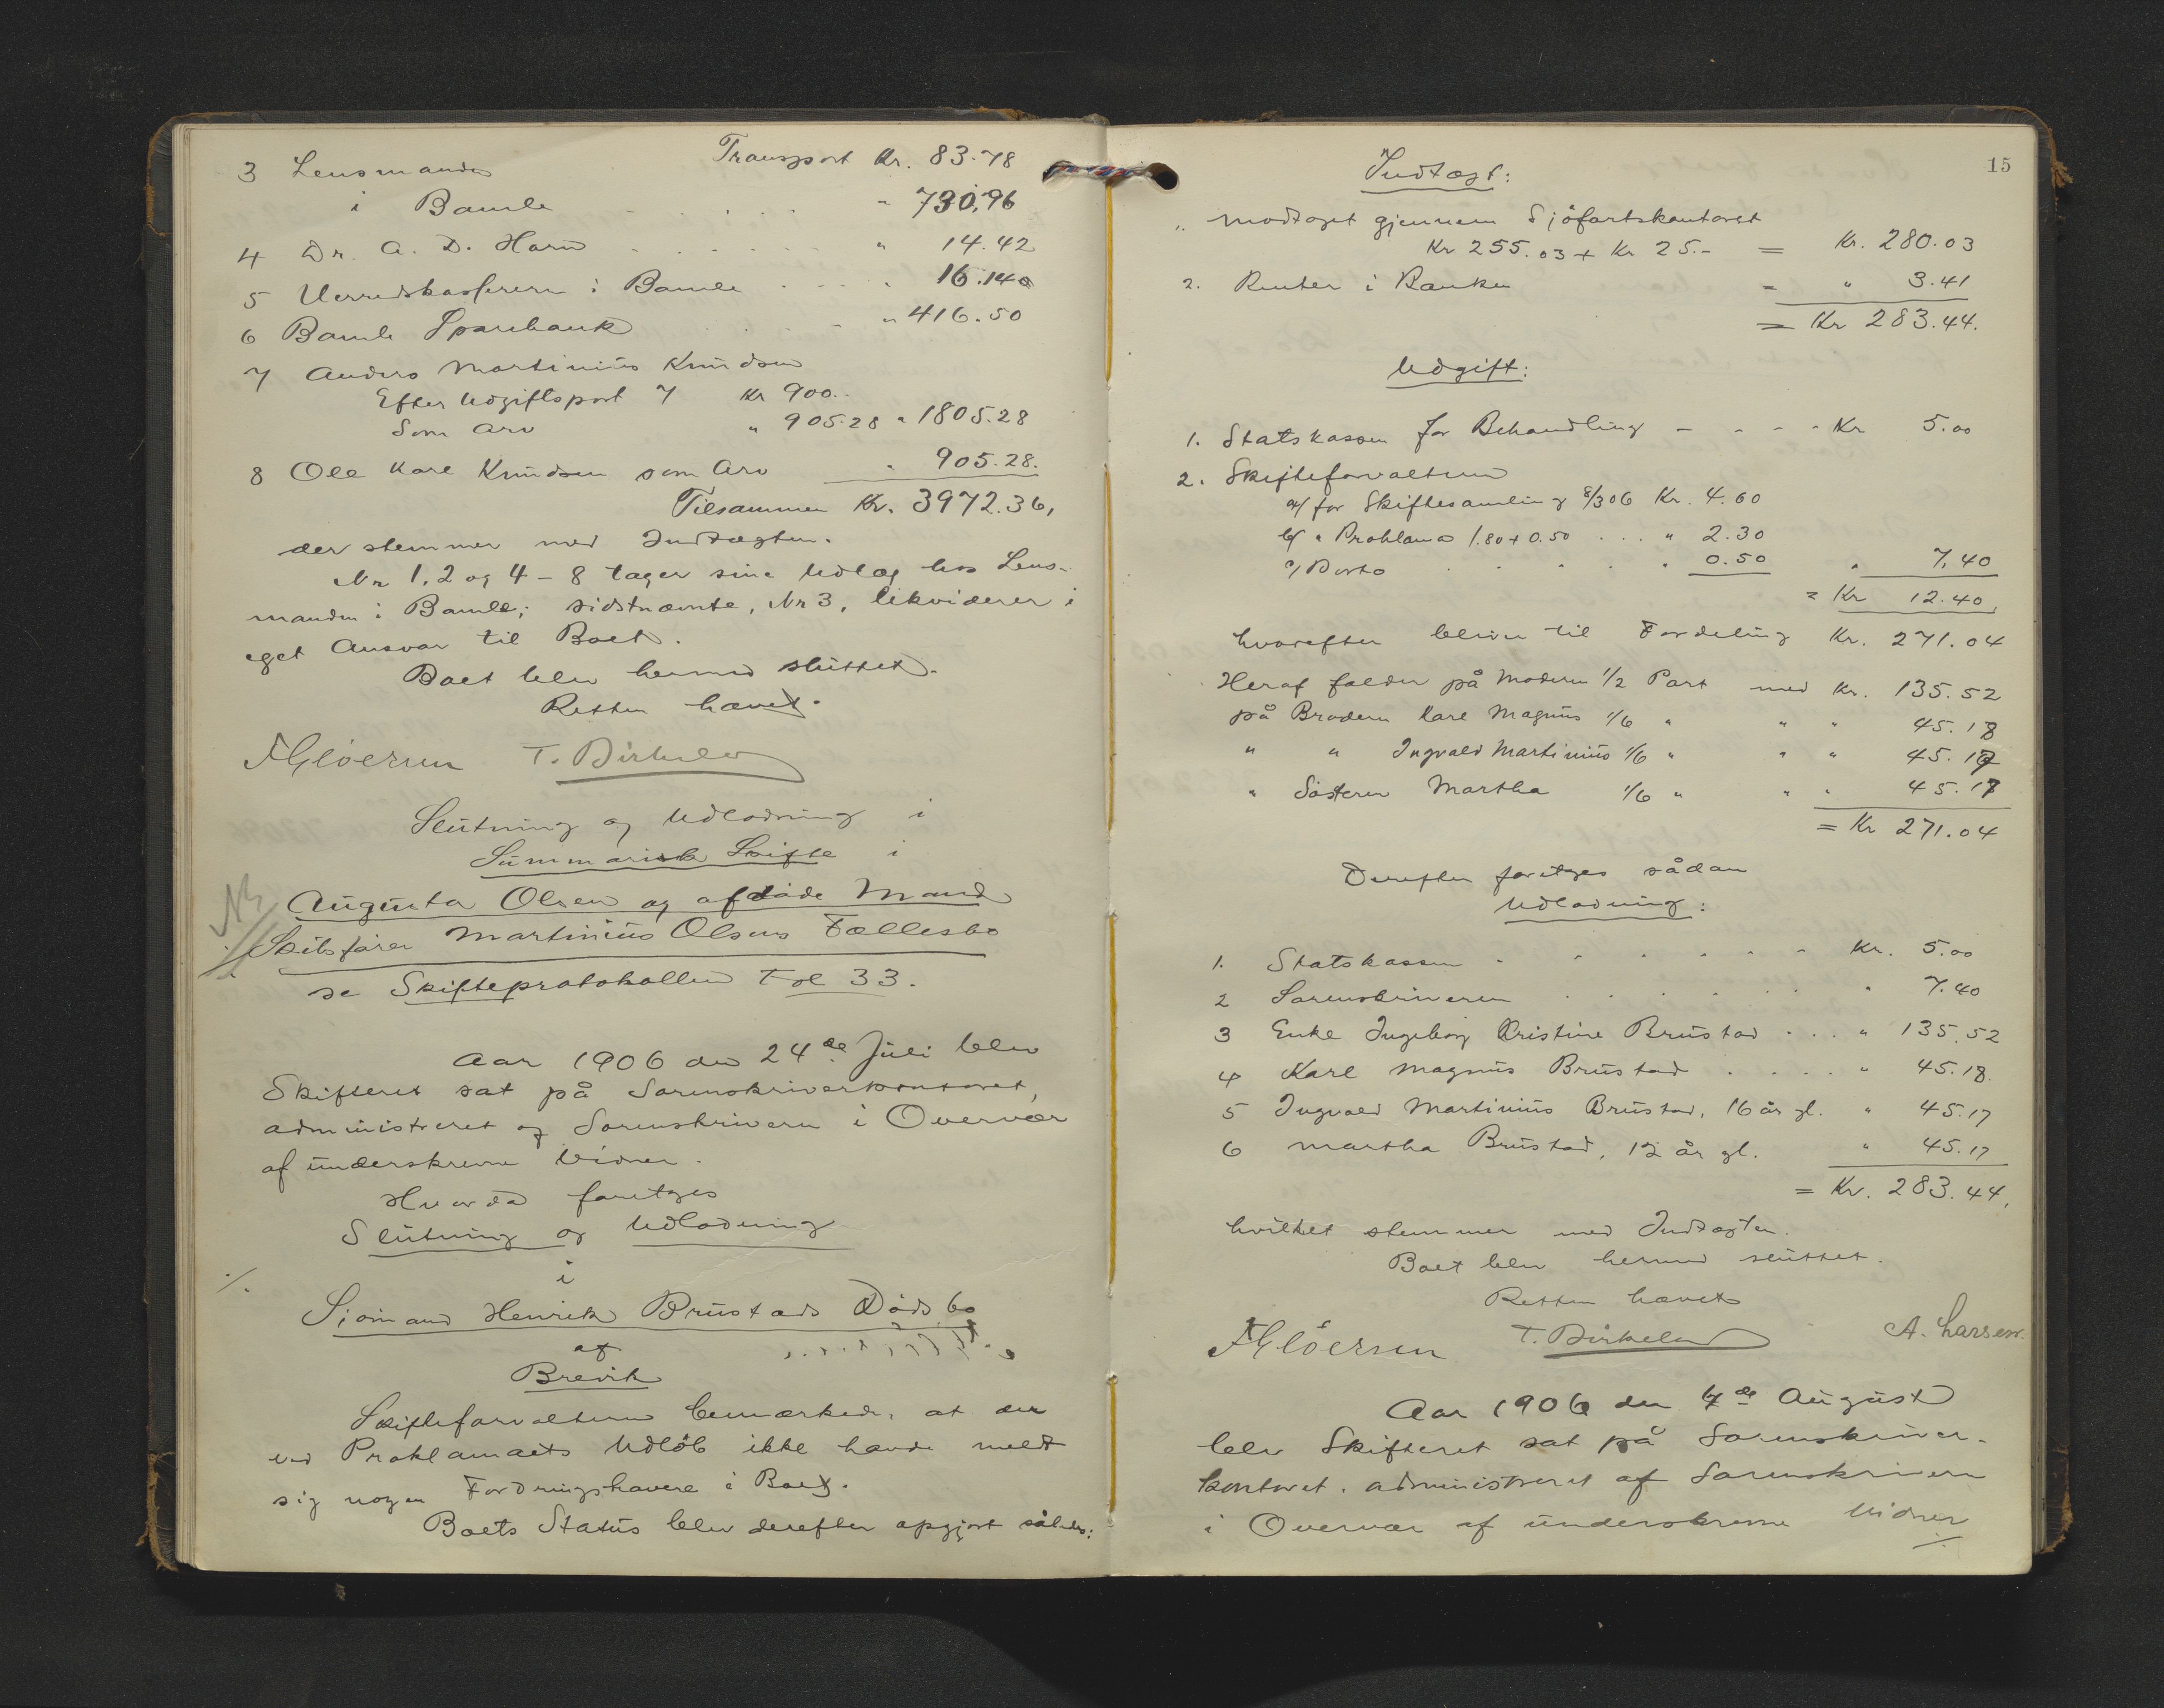 Transport Kr. 83.78
3 Lensmanden
i Bamle . . . . . " 730,96
4 Dr. A. D. Horn . . . . . " 14.42
5 Herredskassereren i Bamle . . . . 16.140
6 Bamle Sparebank . . . . " 416.50
7 Anders Martinius Knudsen
Efter Udgiftspost 7 Kr 900..
Som Arv " 905.28 " 1805.28
8 Ole Karl Knudsen som Arv " 905.28.
Tilsammen Kr. 3972.36,
der stemmer med Indtægten.
Nr 1, 2 og 4 - 8 tager sine Udlæg hos Lens-
manden i Bamle; sidstnævnte, Nr 3, likviderer i
eget Ansvar til Boet.
Boet blev hermed sluttet.
Retten hævet.
T. Birkeland
Slutning og Udlodning i
Summarisk Skifte i
Augusta Olsen og afdøde Mand
Skibsfører Martinius Olsens Fællesbo
se Skifteprotokollen Fol 33.
Aar 1906 den 24de Juli blev
Skifteret sat på Sorenskriverkontoret,
administreret af Sorenskriveren i Overvær
af underskrevne Vidner.
Hvorda foretges
Slutning og Udlodning
i
Sjømand Henrik Brustads Dødsbo
af
Brevik
Skifteforvalteren bemærkede, at der
ved Proklamaets Udløb ikke havde meldt
sig nogen Fordringshavere i Boet.
Boets Status blev derefter opgjort således:
15
Indtægt:
" modtaget gjennem Sjöfartskontoret
Kr 255.03 + Kr 25.- = Kr. 280.03
2. Renter i Banken = " 3.41
= Kr 283.44.
Udgift:
1. Statskassen for Behandling - - - - Kr 5.00
2. Skifteforvalteren
a/ for Skiftesamling 8/3 06 Kr. 4.60
b/ " Proklama 1.80 + 0.50 . . . " 2.30
c/ Porto . . . . . " 0.50 " 7,40
= Kr 12.40
hvorefter bliver til Fordeling Kr. 271.04
Heraf falder på Moderen 1/2 Part med Kr. 135.52
på Broderen Karl Magnus 1/6 " " " 45.18
" " Ingvald Martinius 1/6 " " " 45.17
" Søsteren Martha 1/6 " " " 45.17
= Kr 271.04
Derefter foretges sådan
Udlodning:
1. Statskassen . . . . . . Kr. 5.00
2 Sorenskriveren . . . . . . " 7.40
3 Enke Ingeborg Kristine Brustad . . . " 135.52
4 Karl Magnus Brustad . . . . " 45.18.
5 Ingvald Martinius Brustad, 16 år gl. " 45.17
6 Martha Brustad, 12 år gl. " 45.17
= Kr. 283.44,
hvilket stemmer med Indtægten.
Boet blev hermed sluttet.
Retten hævet
T. Birkeland A. Larsen.
Aar 1906 den 4de August
blev Skifteret sat på Sorenskriver-
kontoret, administreret af Sorenskriveren
i Overvær af underskrevne Vidner